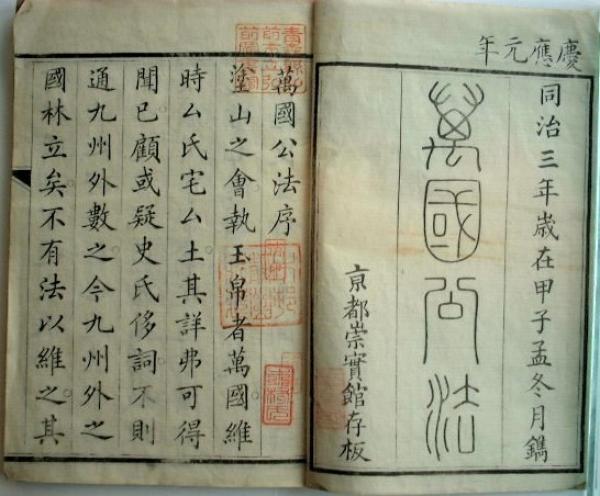 慶應元年
同治三年歲在甲子孟冬月鐫
萬國公法
京都崇實館存板
萬國公法序
塗山之會執玉帛者萬國維
時厶氏宅厶土其詳弗可得
聞已顧或疑史氏侈詞不則
通九州外數之今九州外之
國林立矣不有法以維之其